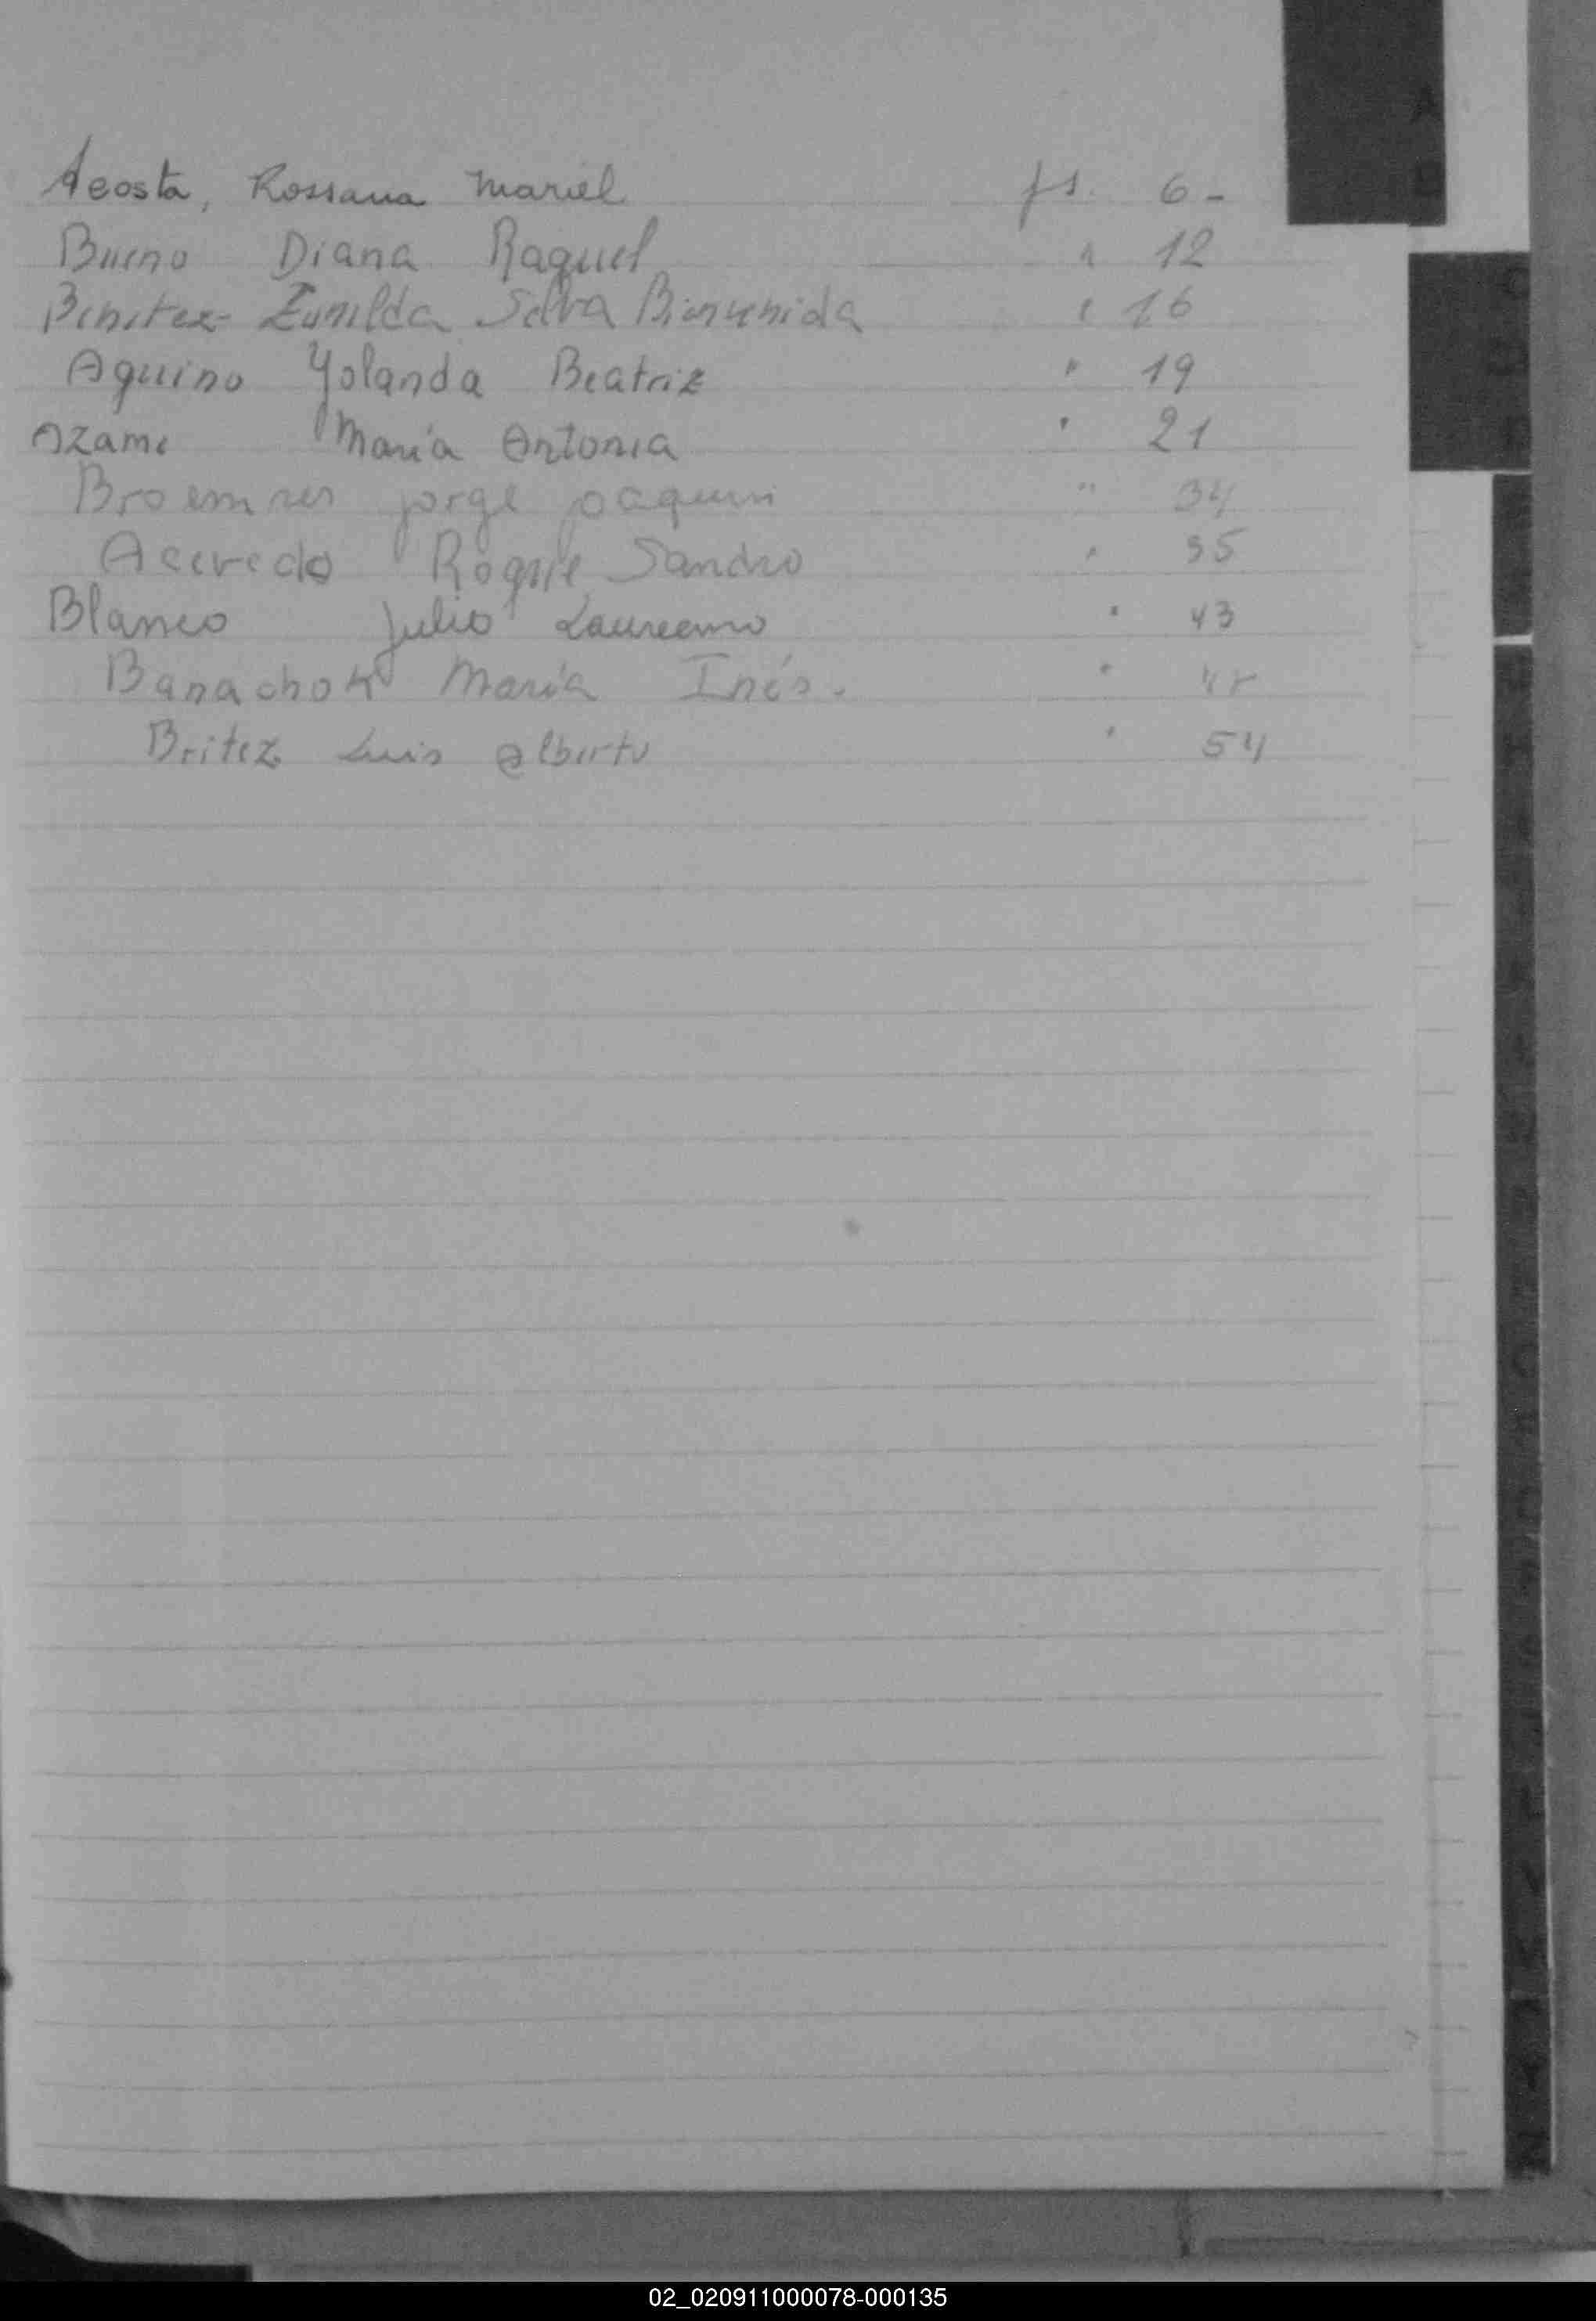 Acosta, Rossana Mariel fs. 6-
Bueno Diana Raquel " 12
Benitez Zunilda Selva Bienvenida " 16
Aquino Yolanda Beatriz " 19
Azame María Antonia " 21
Jorge Joaquin " 34
Acevedo Roque Sandro " 35
Blanco Julio Laureano " 43
María Inés. "
Britez Luis Alberto " 54
02_020911000078-000135